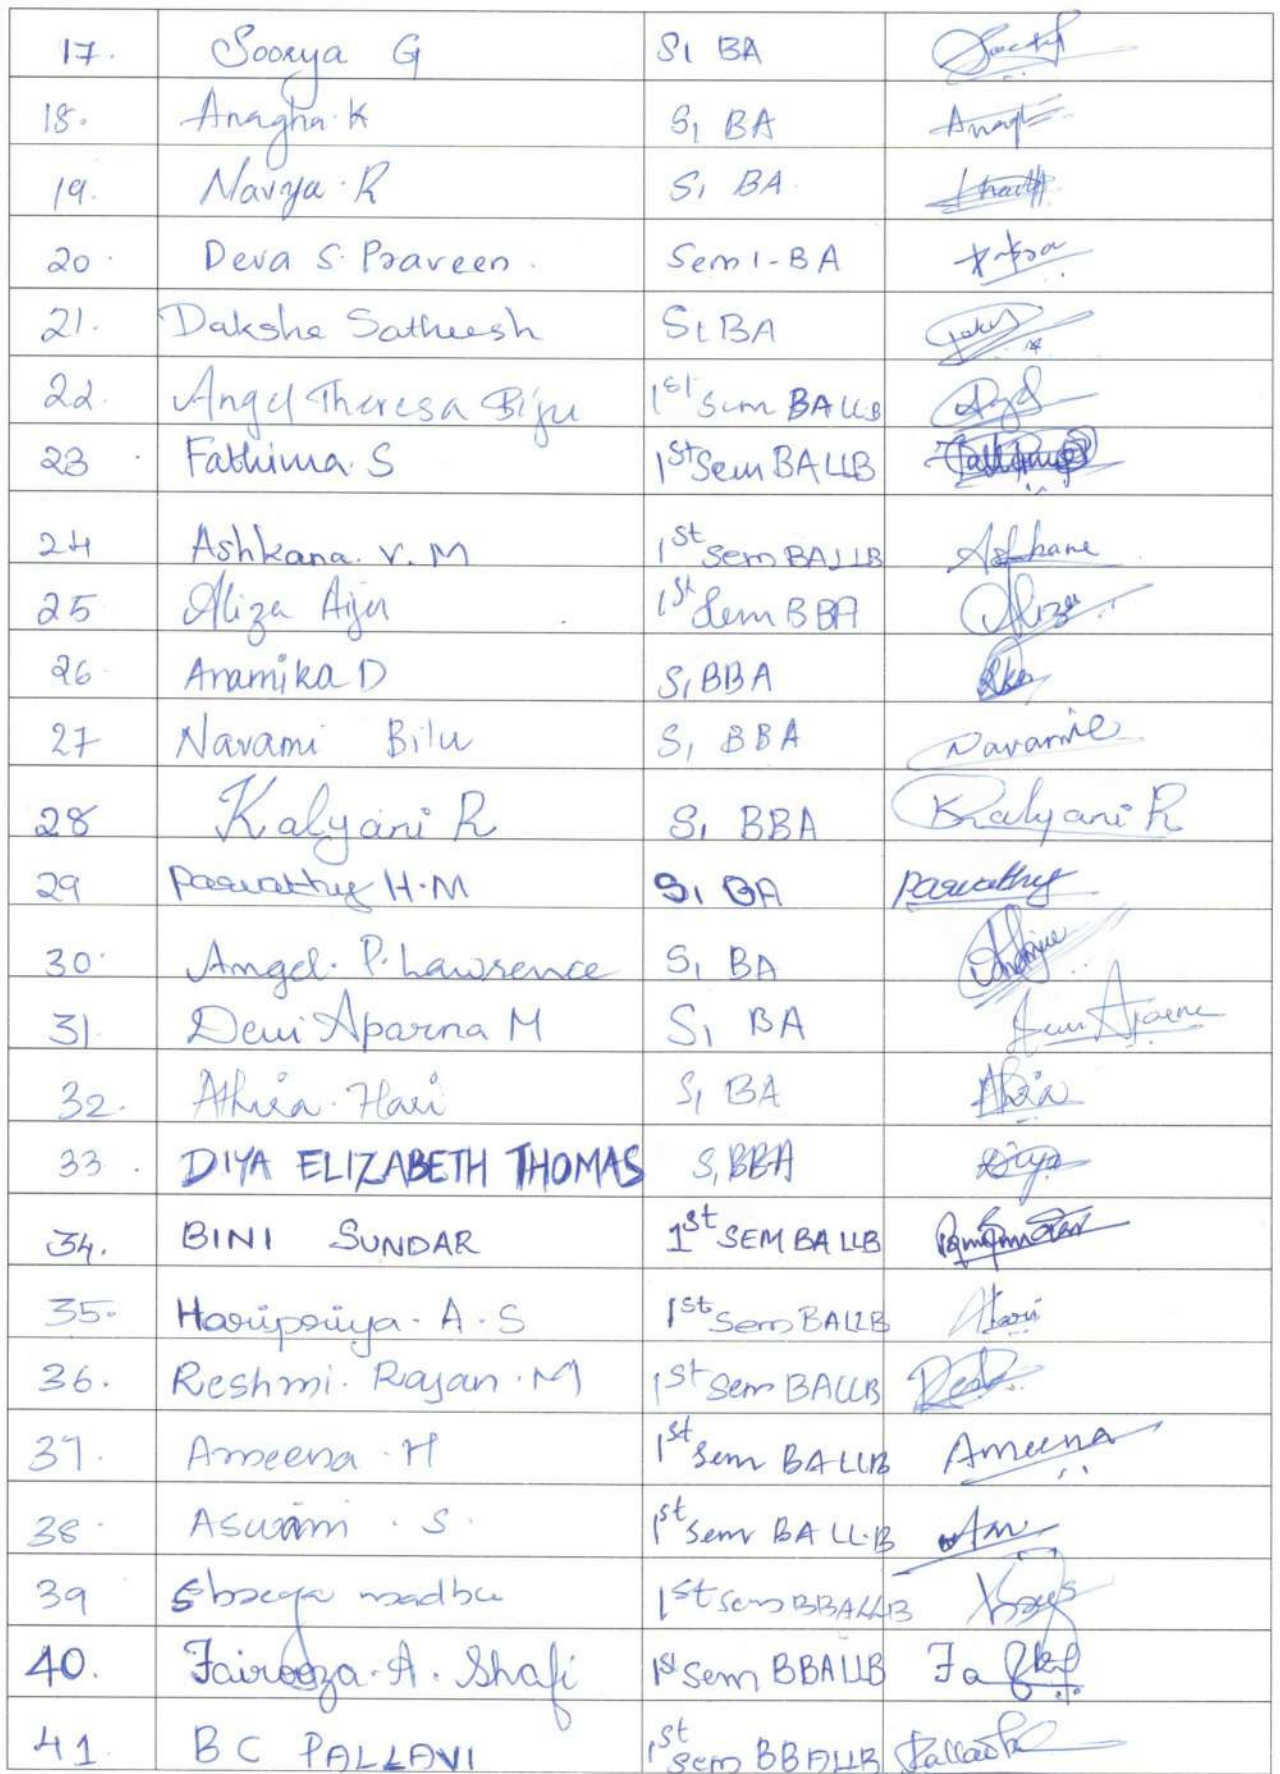 17. Soorya G S1 BA
18. Anagha. K S1 BA Anagh
19. Navya. R S1 BA.
20. Deva S. Praveen. Sem 1-BA
21. Daksha Satheesh S1 BA
22. Angel Theresa Biju 1st Sem BA LLB Angel
23. Fathima. S 1st Sem BA LLB Fathima
24 Ashkana. V. M 1st Sem BA LLB Ashkana
25 Aliza Aiju 1st Sem BBA Aliza
26. Anamika D S1 BBA
27 Navami Bilu S1 BBA Navami
28 Kalyani R S1 BBA Kalyani R
29 Parvathy H.M S1 BA Parvathy
30. Angel. P. Lawrence S1 BA
31. Devi Aparna M S1 BA Devi Aparna
32. Athira. Hari S1 BA Athira
33. DIYA ELIZABETH THOMAS S1 BBA Diya
34. BINI SUNDAR 1st SEM BA LLB
35. Haripriya. A. S 1st Sem BALLB Hari
36. Reshmi. Rajan. M 1st Sem BALLB
37. Ameena. H 1st Sem BA LLB Ameena
38. Aswini. S. 1st Sem BA LL.B
39 madhu 1st Sem BBA LLB
40. Fairooza. A. Shafi 1st Sem BBA LLB
41. B C PALLAVI 1st Sem BBA LLB